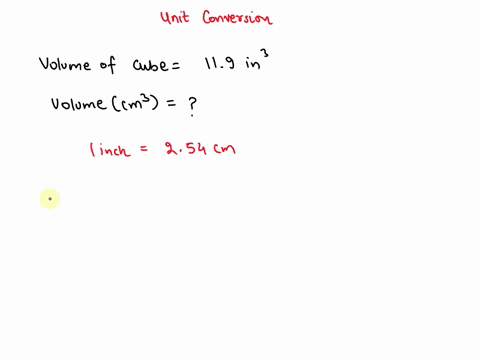 Unit Conversion
Volume of cube = 11.9 in³
Volume (cm³) = ?
1 inch = 2.54 cm